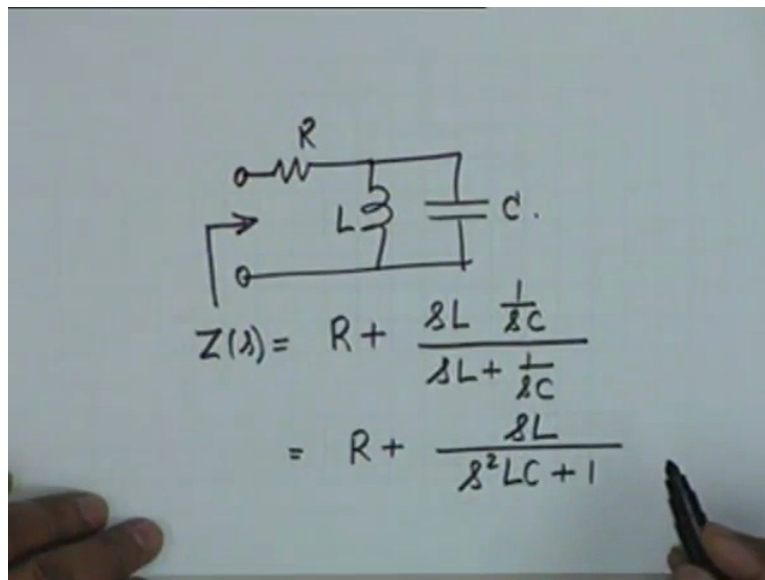 R
L C.
Z(s) = R + sL 1/sC / sL + 1/sC
= R + sL / s²LC + 1